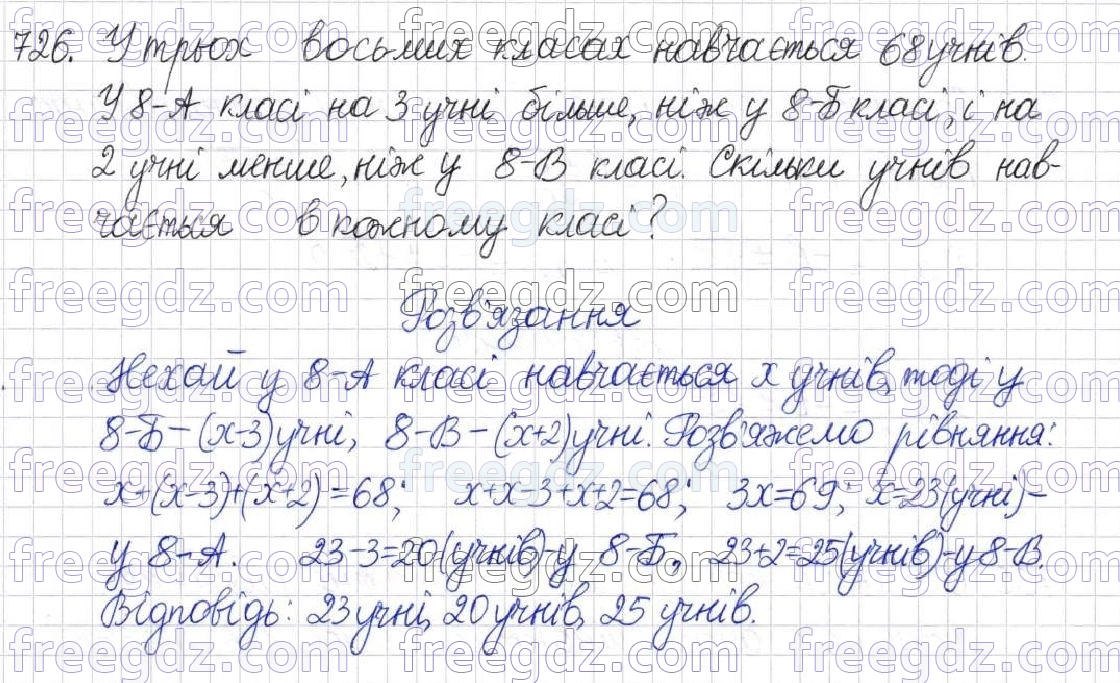 726. У трьох восьмих класах навчається 68 учнів.
У 8-А класі на 3 учні більше, ніж у 8-Б класі, і на
2 учні менше, ніж у 8-В класі. Скільки учнів нав-
чається в кожному класі?
Розв'язання
Нехай у 8-А класі навчається х учнів, тоді у
8-Б - (х-3) учні, 8-В - (х+2) учні. Розв'яжемо рівняння:
х+(х-3)+(х+2)=68; х+х-3+х+2=68; 3х=69; х=23(учні)-
у 8-А. 23-3=20(учнів)-у 8-Б, 23+2=25(учнів)-у 8-В.
Відповідь: 23 учні, 20 учнів, 25 учнів.
freegdz.com